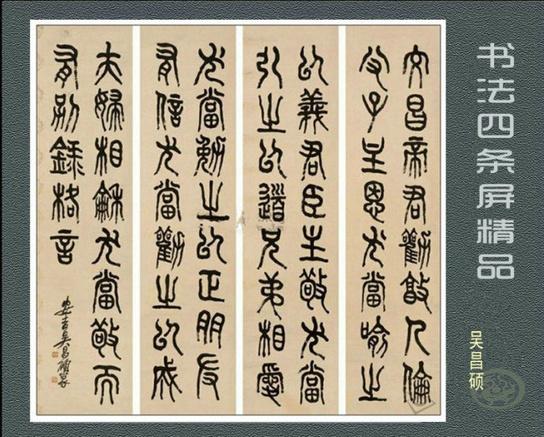 书法四条屏精品
吴昌硕
文昌帝君勸敦人倫
父子主恩尤當喻之
以義君臣主敬尤當
引之以道兄弟相愛
尤當勉之以正朋友
有信尤當勸之以成
夫婦相龢尤當敬而
有別錄格言
安吉吳昌碩篆